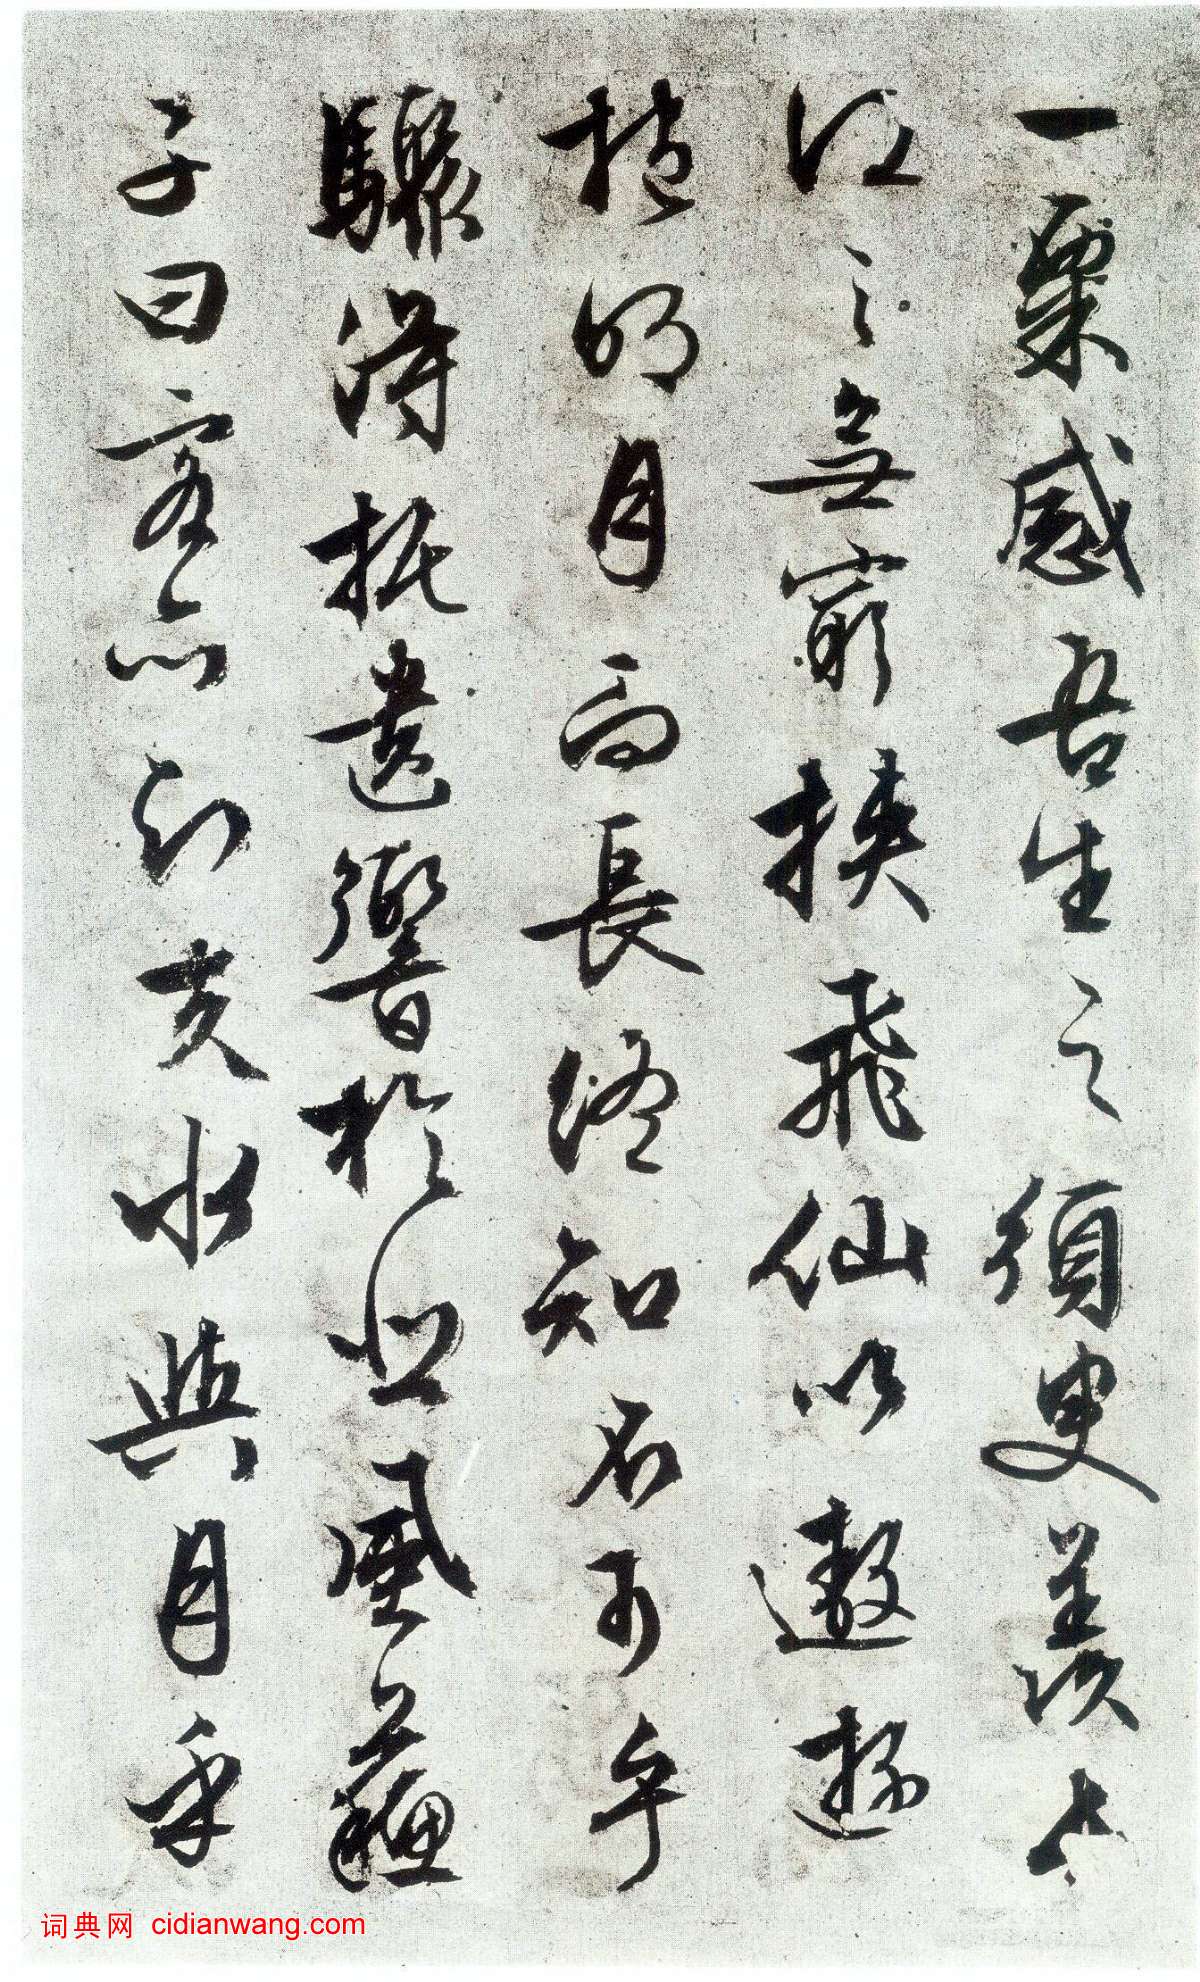 一粟感吾生之須臾羨長
江之無窮挾飛仙以遨遊
抱明月而長終知不可乎
驟得托遺響於悲風蘇
子曰客亦知夫水與月乎
词典网 cidianwang.com